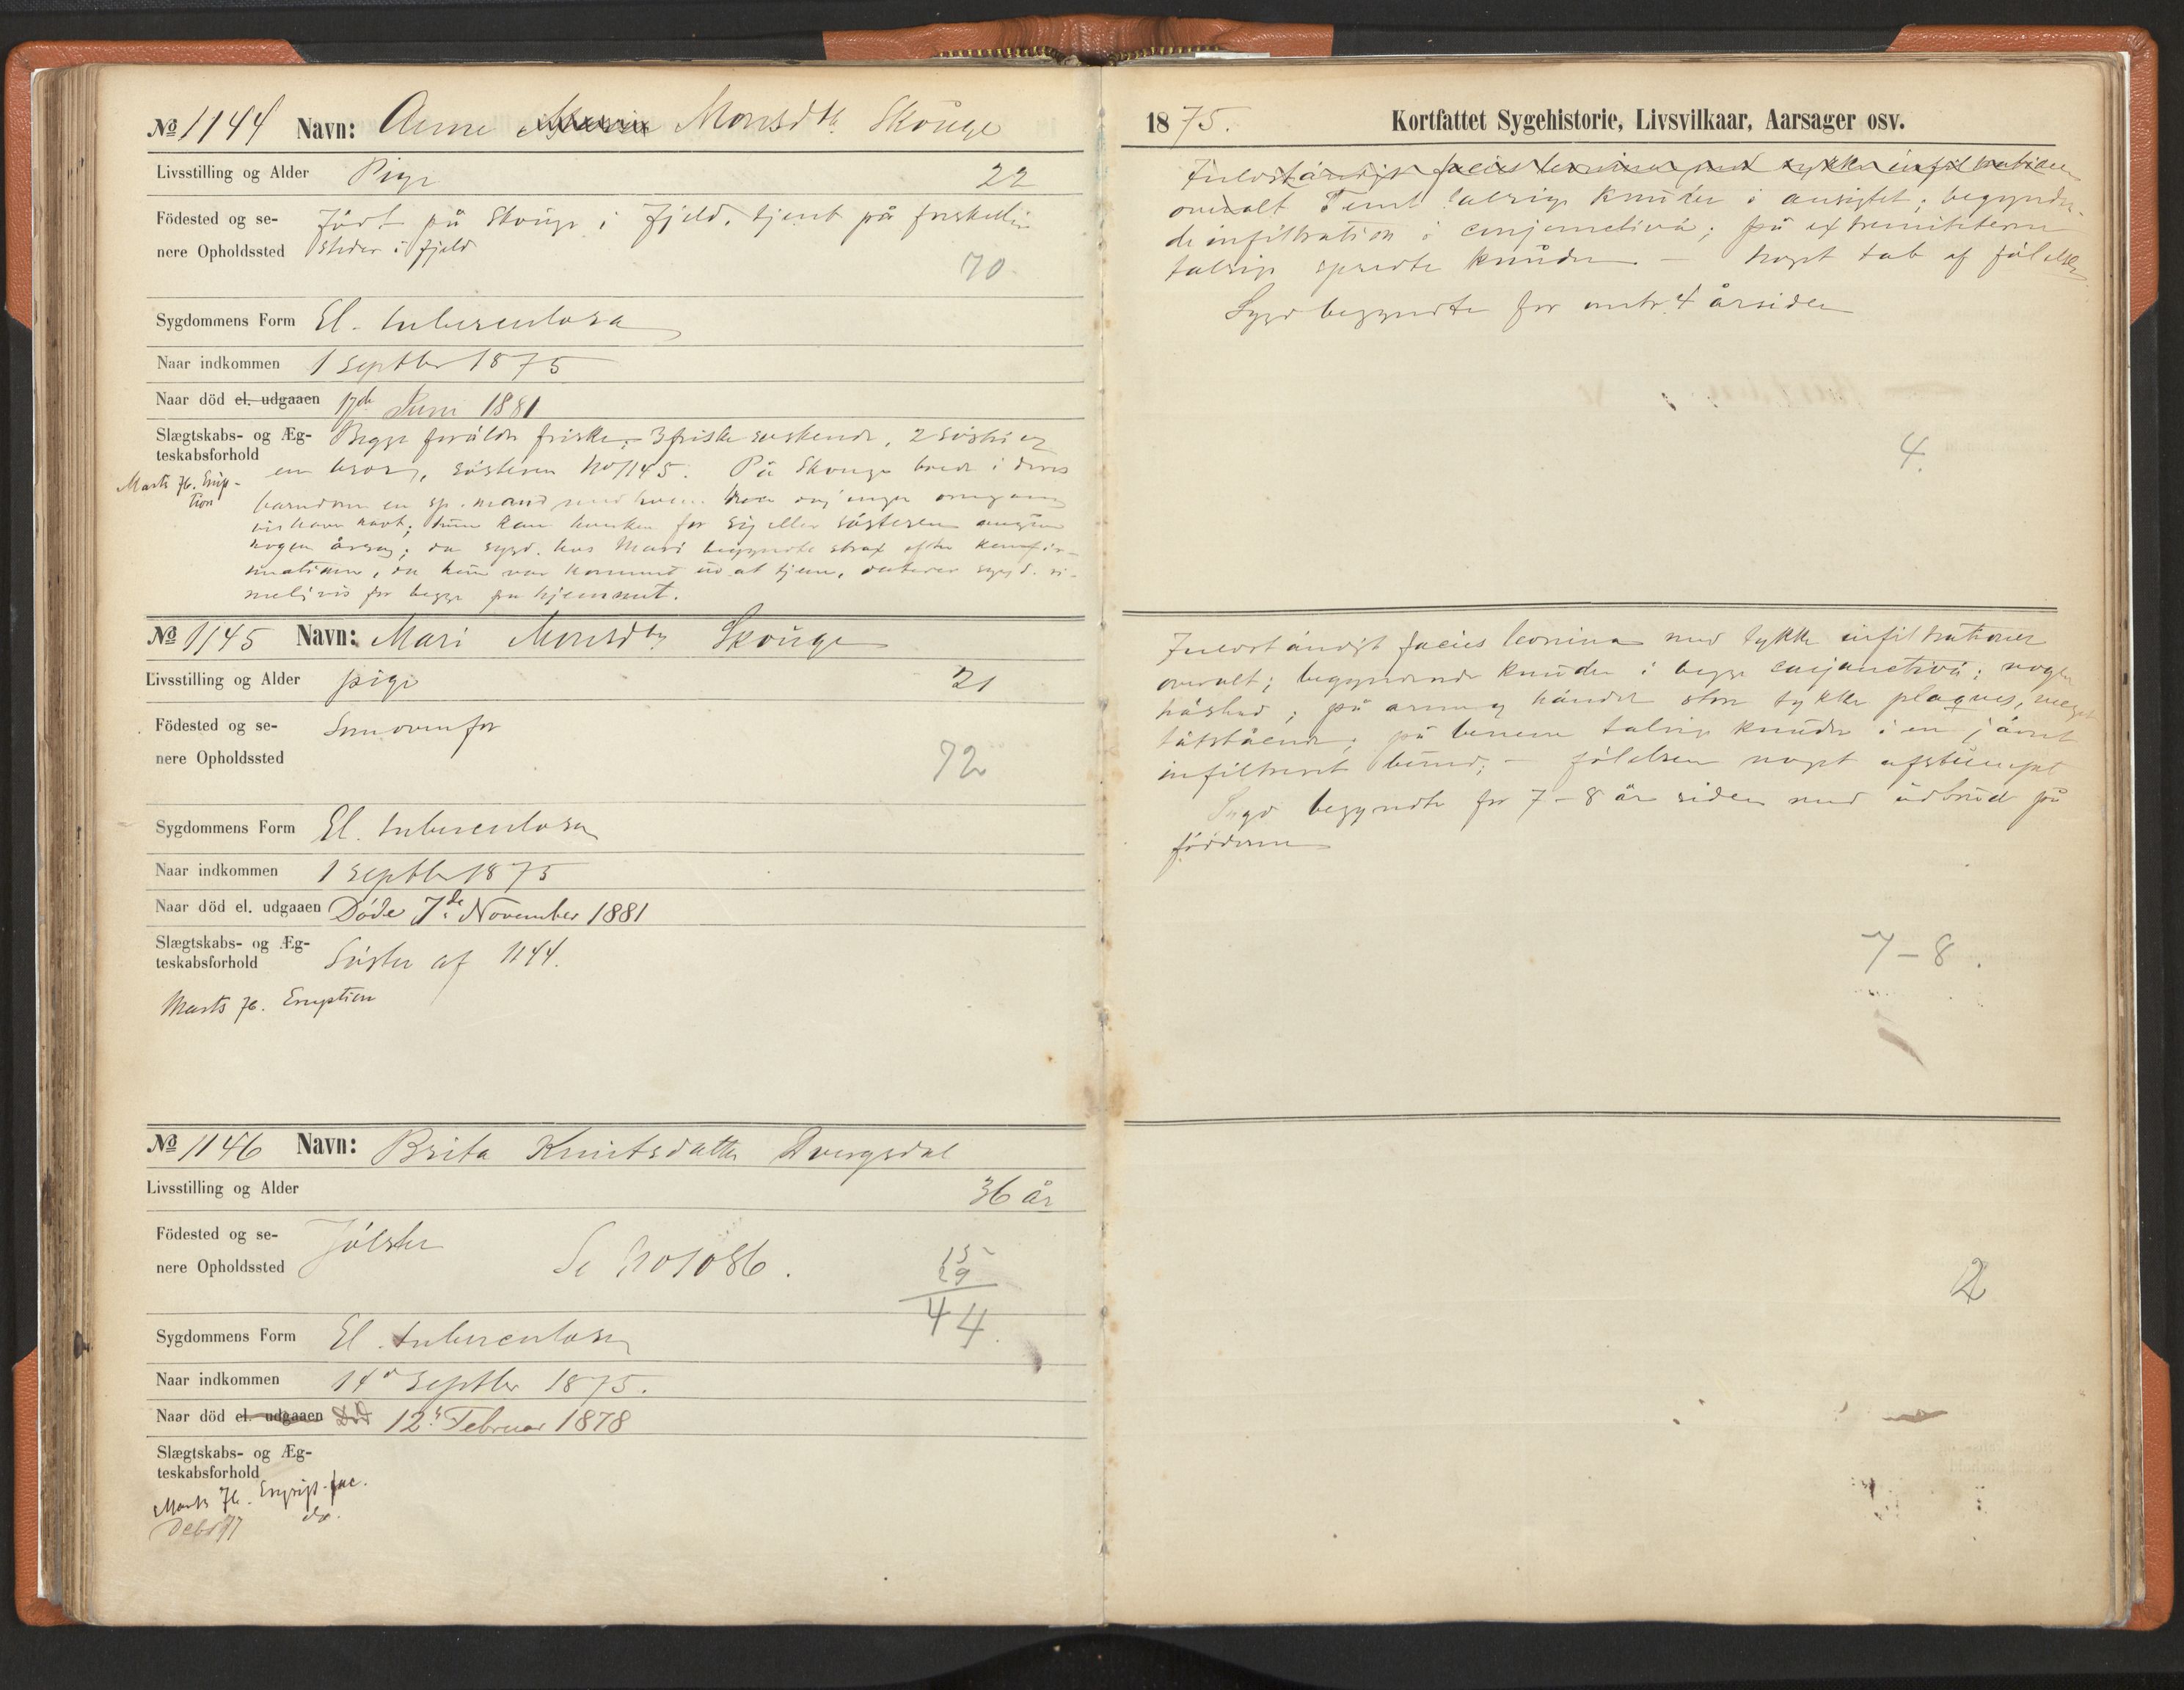 No 1144 Navn: Anne Monsdtr. Skouge
Livsstilling og Alder Pige 22
Födested og se- Födt på Skouge i Fjeld, tjent på forskellige
nere Opholdssted Steder i Fjeld
70
Sygdommens Form El. tuberculosa
Naar indkommen 1 Septbr 1875
Naar död el. udgaaen 17de Juni 1881
Slægtskabs- og Æg- Begge foräldre friske; 3 friske söskende, 2 söstre og
teskabsforhold en bror, sösteren No 1145. På Skouge boede i deres
Marts 76. Erup-
tion
barndom en sp. mand med hvem
havt; hun kan hverken for sig eller sösteren angive
nogen årsag; da sygd. hos Mari begyndte strax efter konfir-
mationen, da hun var kommet ud at tjene, daterer sygd. ri-
meligvis for begge fra hjemmet.
No 1145 Navn: Mari Monsdtr Skouge
Livsstilling og Alder pige 21
Födested og se- Som ovenfor
nere Opholdssted
72
Sygdommens Form El. tuberculosa
Naar indkommen 1 Septbr 1875
Naar död el. udgaaen Döde 7de November 1881
Slægtskabs- og Æg-
teskabsforhold Söster af 1144.
Marts 76. Eruption
No 1146 Navn: Brita Knutsdatter Dvergsdal
Livsstilling og Alder 36 år
Födested og se- Jölster
nere Opholdssted Se No 1086.
15
29
44.
Sygdommens Form El. tuberculosa
Naar indkommen 14d Septbr 1875.
Naar död el. udgaaen Död 12t Februar 1878
Slægtskabs- og Æg-
teskabsforhold
Marts 76. Erysip. fac.
Debr 77 do.
1875. Kortfattet Sygehistorie, Livsvilkaar, Aarsager osv.
Fuldständigt facies leonina med tykke infiltrationer
overalt Temt talrige knuder i ansigtet; begynden-
de infiltration i conjunctiva; på extremiteterne
talrige spredte knuder – noget tab af fölelse
Sygd begyndte for omtr. 4 år siden
4.
Fuldständigt facies leonina med tykke infiltrationer
overalt; begyndende knuder i begge conjunctivä; nogen
häshed; på arme og händer store tykke plaques, meget
tätstäende; på benene talrige knuder i en jävnt
infiltreret bund; – fölelsen noget afstumpet
Sygd begyndte for 7–8 år siden med udbrud på
födderne
7–8.
2